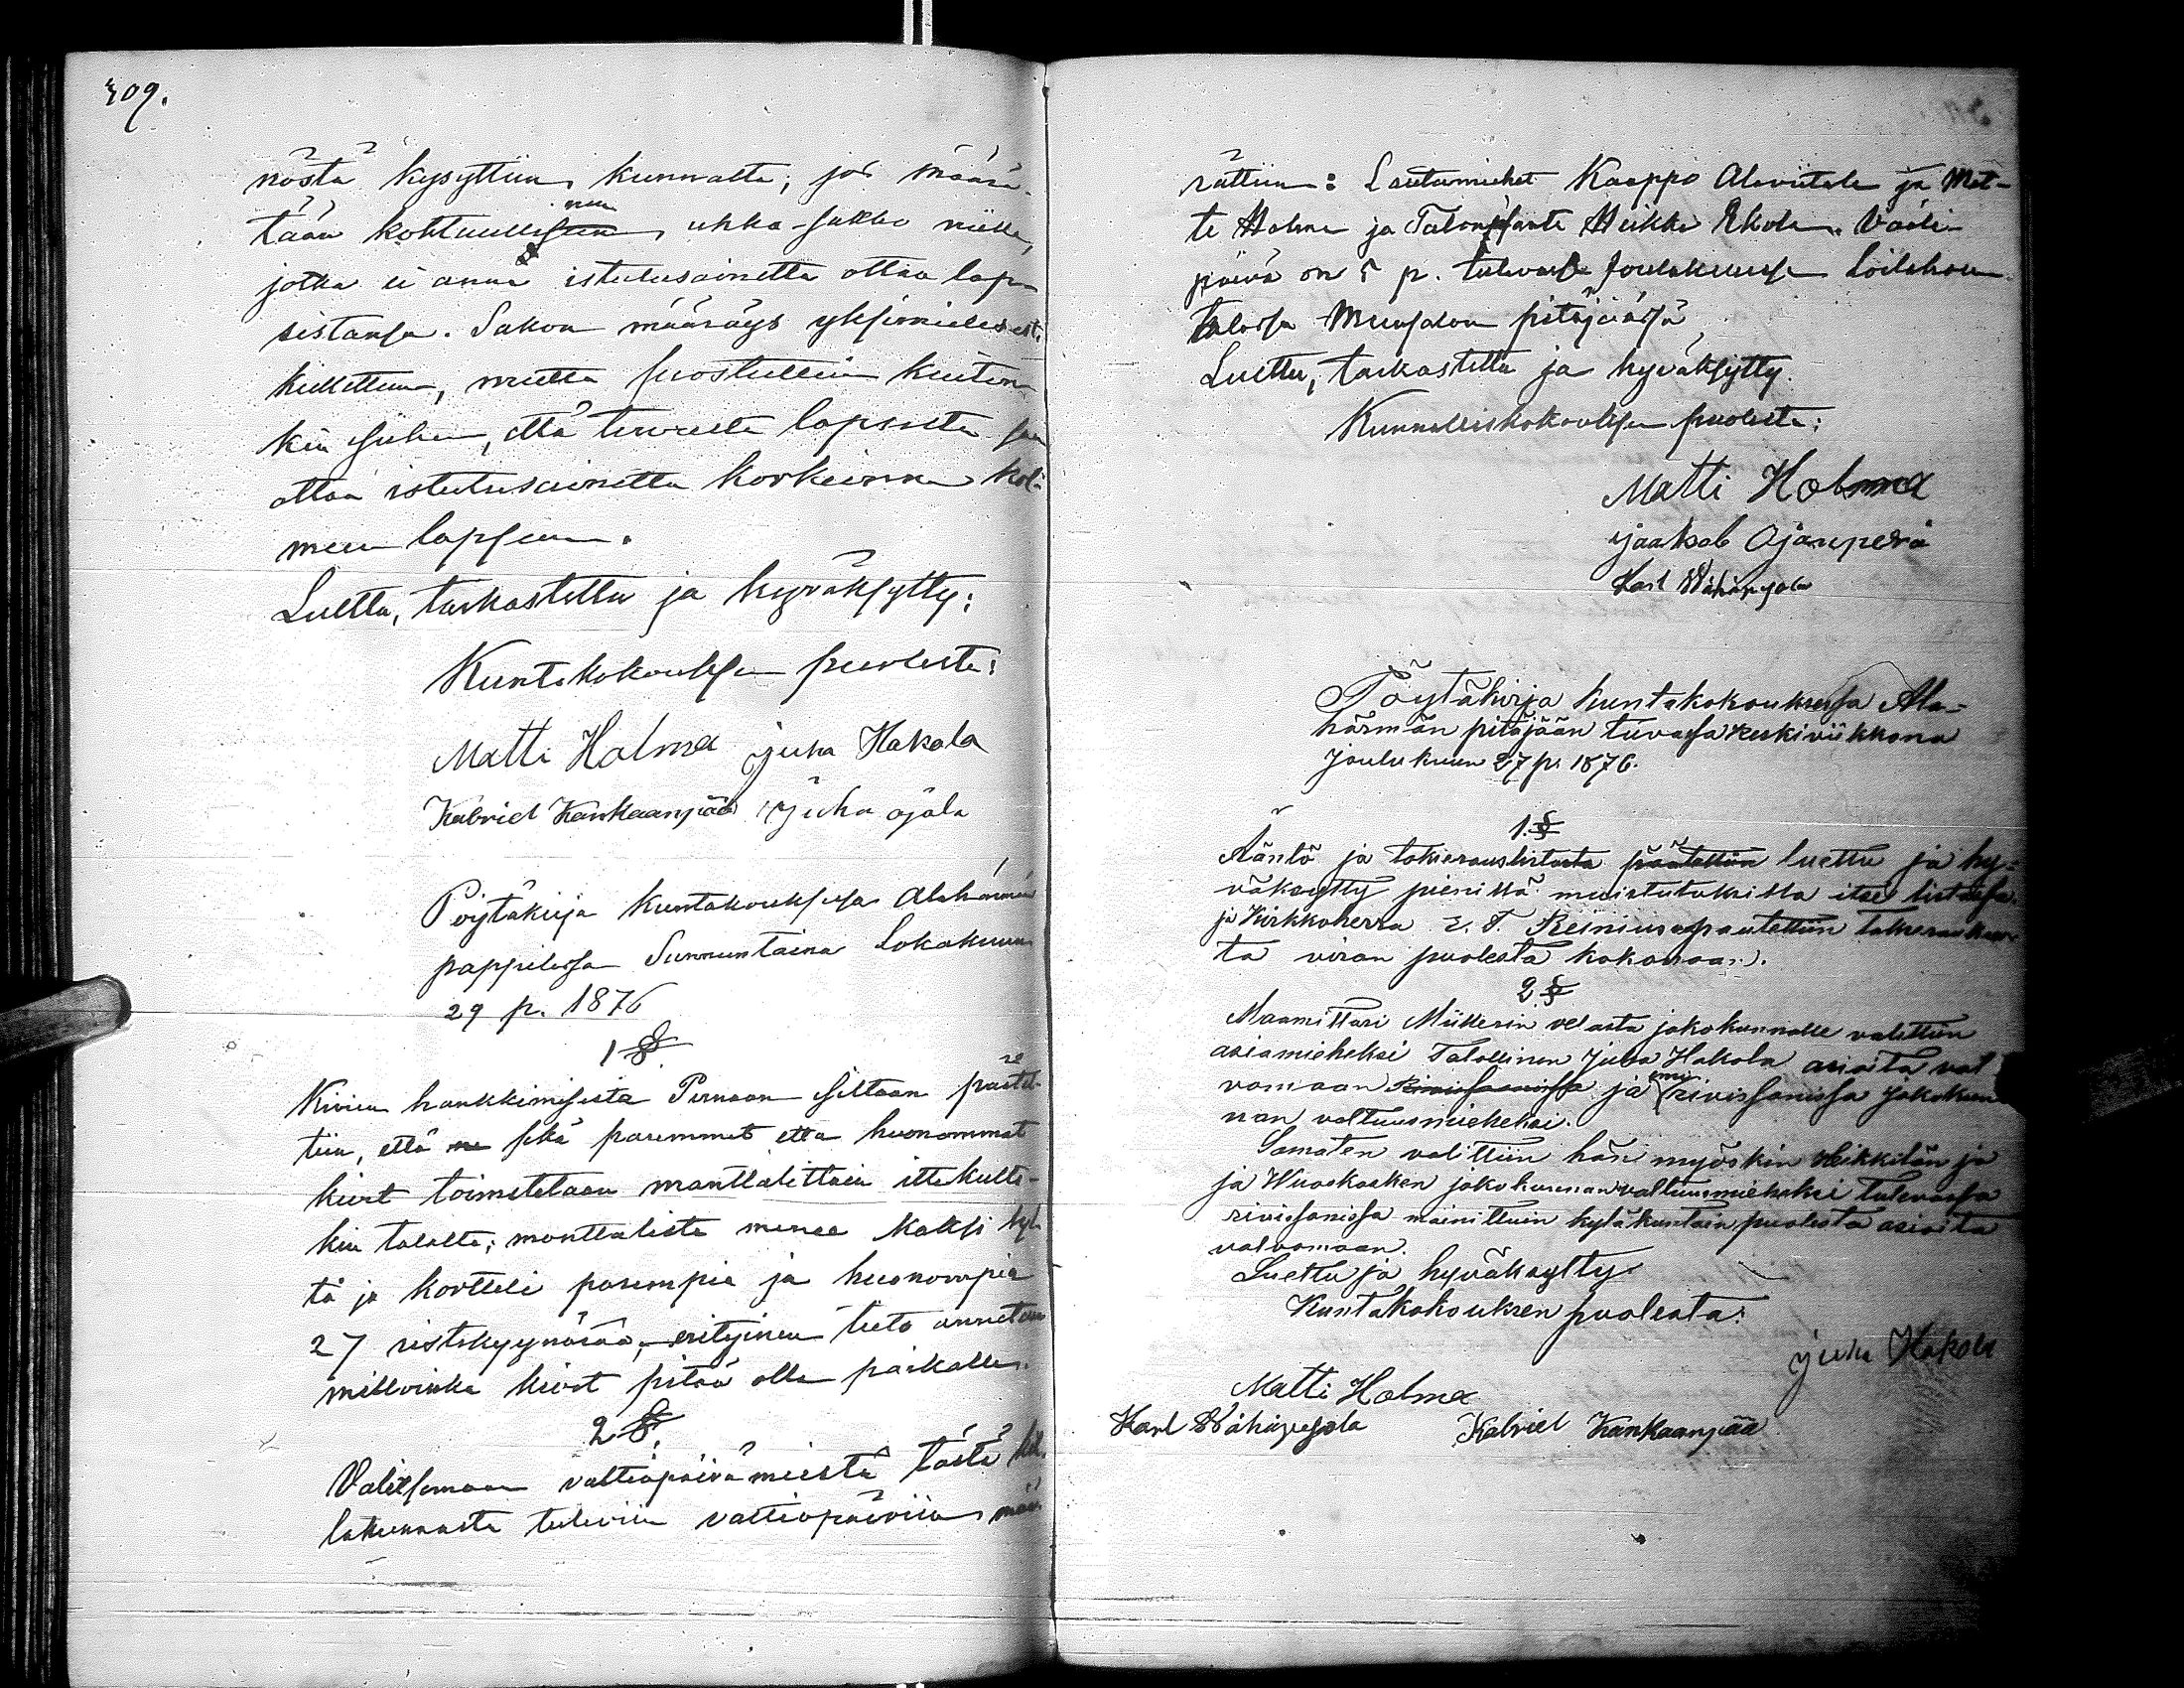 309.
nöstä kysyttiin kunnalta, jos määrä-
tään kohtuullinen uhka-sakko niille,
jotka ei anna istutusainetta ottaa lap-
sistansa. Sakon määräys yksimielisesti
kiellettiin, mutta suostuttiin kuiten-
kin siihen, että terveistä lapsista saa
ottaa istutusainetta korkeinna kol-
meen lapseen.
Luettu, tarkastettu ja hyväksytty;
Kuntakokouksen puolesta;
Matti Holma Juha Hakola
Kabriel Kankaanpää Juha Ojala
Pöytäkirja kuntakouksessa Alahärmän
pappilassa Sunnuntaina Lokakuun
29 p. 1876
1 §
Kivien hankkimisesta Pernaan siltaan päätet-
tiin, että sekä paremmat että huonommat
kivet toimitetaan manttalittain itsekulta-
kin talolta; manttalista menee kaksi syl-
tä ja kortteli parempia ja huonompia
27 ristikyynärää, erityinen tieto annetaan
milloinka kivet pitää olla paikalla.
2 §.
Valitsemaan valtiopäivämiestä tästä kih-
lakunnasta tuleviin valtiopäiviin mää-
rättiin: Lautamiehet Kaappo Alaviitala ja Mat-
ti Holma ja Talon Heikki Ekola. Vaali-
päivä on 5 p. tulevassa Joulukuussa Löilahan
talossa Munsalan pitäjäässä
Luettu, tarkastettu ja hyväksytty.
Kunnalliskokouksen puolesta;
Matti Holma
Jaakob Ojanperä
Karl Wähäpesola
Pöytäkirja kuntakokouksessa Ala-
härmän pitäjään tuvassa keskiviikkona
Joulukuun 27 p. 1876.
1. §
Ääntö ja taksierauslistasta päätettiin luettu ja hy-
väksytty pienillä muistutuksilla itse listassa.
ja Kirkkoherra Reinius päätettiin
ta viran puolesta kokonaan.
2 §
Maamittari Müllerin velasta jakokunnalle valittiin
asiamieheksi Talollinen Juha Hakola asioita val
vomaan ja rivissanissa Jakokun
nan valtuusmieheksi.
Samaten valittiin hän myöskin Heikkilän ja
ja Wuoskosken jakokunnan valtuusmieheksi tulevassa
rivissanissa mainittuin kyläkuntain puolesta asioita
valvomaan.
Luettu ja hyväksytty
Kuntakokouksen puolesta:
Juha Hakola
Matti Holma
Karl Wähäpesola Kabriel Kankaanpää